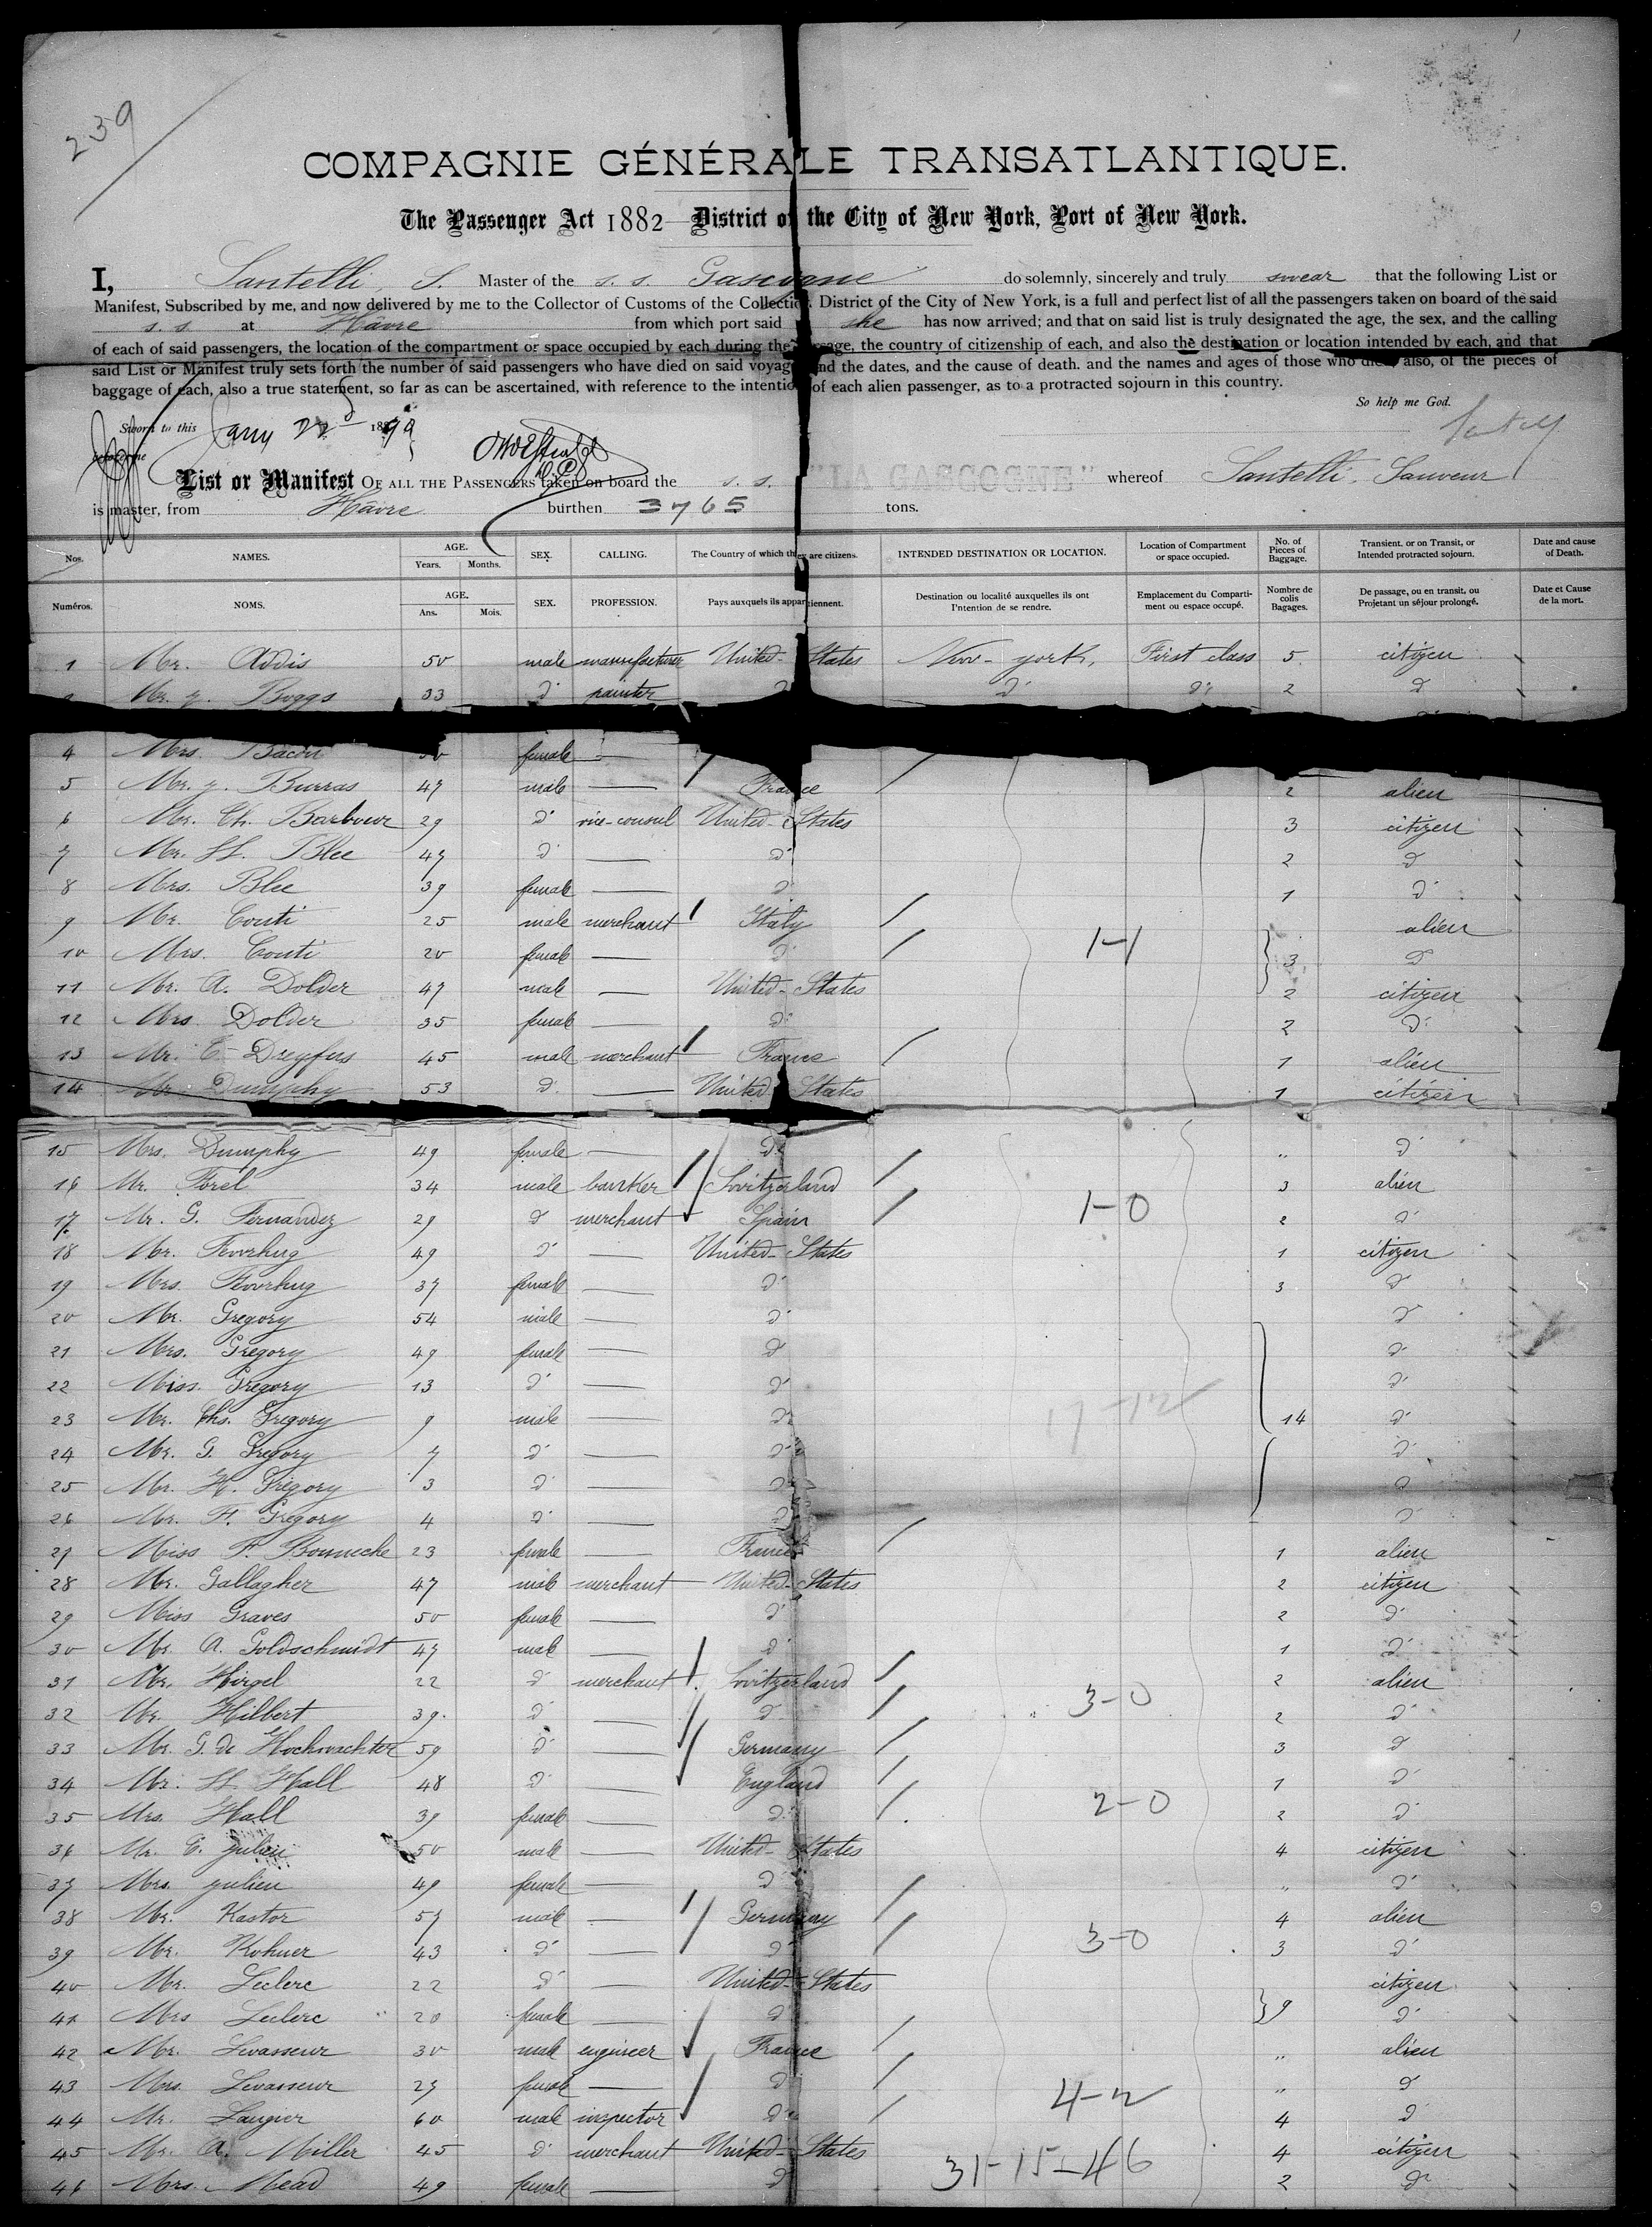 239
COMPAGNIE GÉNÉRALE TRANSATLANTIQUE.
The Passenger Act 1882 District of the City of New York, Port of New York.
I, Santelli, S. Master of the s. s. Gascogne do solemnly, sincerely and truly swear that the following List or
Manifest, Subscribed by me, and now delivered by me to the Collector of Customs of the Collection District of the City of New York, is a full and perfect list of all the passengers taken on board of the said
s. s. at Havre from which port said she has now arrived; and that on said list is truly designated the age, the sex, and the calling
of each of said passengers, the location of the compartment or space occupied by each during the passage, the country of citizenship of each, and also the destination or location intended by each, and that
said List or Manifest truly sets forth the number of said passengers who have died on said voyage and the dates, and the cause of death. and the names and ages of those who died also, of the pieces of
baggage of each, also a true statement, so far as can be ascertained, with reference to the intention of each alien passenger, as to a protracted sojourn in this country.
So help me God.
Sworn to this Jany 22d
before me
List or Manifest OF ALL THE PASSENGERS taken on board the s. s. "LA GASCOGNE" whereof Santelli, Sauveur
is master, from Havre burthen 3765 tons.
Nos. NAMES. AGE. Years. Months. SEX. CALLING. The Country of which they are citizens. INTENDED DESTINATION OR LOCATION. Location of Compartment or space occupied. No. of Pieces of Baggage. Transient, or on Transit, or Intended protracted sojourn. Date and cause of Death.
Numéros. NOMS. AGE. Ans. Mois. SEX. PROFESSION. Pays auxquels ils appartiennent. Destination ou localité auxquelles ils ont l'intention de se rendre. Emplacement du Compartiment ou espace occupé. Nombre de colis Bagages. De passage, ou en transit, ou Projetant un séjour prolongé. Date et Cause de la mort.
1 Mr. Addis 50 male manufacturer United-States New-york, First class 5 citizen
Mr. y. Boggs 33 d° painter d° d° d° 2 d°
4 Mrs. Bacon female —
5 Mr. y. Burras 47 male — France 2 alien
6 Mr. Ch. Barbour 29 d° vice-consul United-States 3 citizen
7 Mr. H. Blee 47 d° — d° 2 d°
8 Mrs. Blee 39 female — d° 1 d°
9 Mr. Conti 25 male merchant Italy alien
10 Mrs. Conti 20 female — d° 1-1 3 d°
11 Mr. A. Dolder 47 male — United-States 2 citizen
12 Mrs. Dolder 35 female — d° 2 d°
13 Mr. E. Dreyfus 45 male merchant France 1 alien
14 Mr. Dumphy 53 d° — United States 1 citizen
15 Mrs. Dumphy 49 female — d° " d°
16 Mr. Forel 34 male banker Switzerland 3 alien
17 Mr. G. Fernandez 29 d° merchant Spain 1-0 2 d°
18 Mr. 49 d° — United-States 1 citizen
19 Mrs. 37 female — d° 3 d°
20 Mr. Gregory 54 male — d° d°
21 Mrs. Gregory 49 female — d° d°
22 Miss. Gregory 13 d° — d° d°
23 Mr. Chs. Gregory 9 male — d° 17-12 14 d°
24 Mr. G. Gregory 7 d° — d° d°
25 Mr. H. Gregory 3 d° — d° d°
26 Mr. F. Gregory 4 d° — d° d°
27 Miss F. Bonnecke 23 female — France 1 alien
28 Mr. Gallagher 47 male merchant United-States 2 citizen
29 Miss Graves 50 female — d° 2 d°
30 Mr. A. Goldschmidt 47 male — d° 1 d°
31 Mr. Hirgel 22 d° merchant Switzerland 2 alien
32 Mr. Hilbert 39 d° — d° 3-0 2 d°
33 Mr. G. de Hochwachter 59 d° — Germany 3 d°
34 Mr. H. Hall 48 d° — England 1 d°
35 Mrs. Hall 39 female — d° 2-0 2 d°
36 Mr. E. yulien 50 male — United-States 4 citizen
37 Mrs. yulien 49 female — d° " d°
38 Mr. Kastor 57 male — Germany 4 alien
39 Mr. Kohner 43 d° — d° 3-0 3 d°
40 Mr. Leclerc 22 d° — United-States citizen
41 Mrs Leclerc 20 female — d° 9 d°
42 Mr. Levasseur 30 male engineer France " alien
43 Mrs. Levasseur 27 female — d° " d°
44 Mr. Laugier 60 male inspector d° 4-2 4 d°
45 Mr. A. Miller 45 d° merchant United-States 31-15-46 4 citizen
46 Mrs. Mead 49 female — d° 2 d°